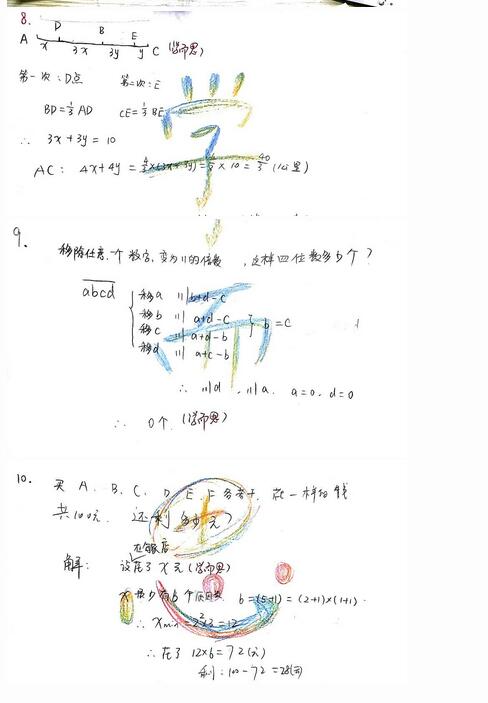 8.
D B E
A x 3x 3y y C (学而思)
第一次：D点 第二次：E
BD=⅓AD CE=⅓BE
∴ 3x+3y=10
AC： 4x+4y = 4/3×(3x+3y) = 4/3×10 = 40/3 (公里)
学
9.
移除任意一个数字，变为11的倍数，这样四位数多少个？
abcd
移a 11| b+d-c
移b 11| a+d-c
移c 11| a+d-b
移d 11| a+c-b
} b=c
∴ 11|d , 11|a. a=0. d=0
而
∴ 0个. (学而思)
10. 买 A、B、C、D、E、F各若干，花一样的钱
共100元. 还剩多少元？
在每店
解： 设花了x元 (学而思)
x最少有6个因数. 6=(5+1)=(2+1)×(1+1).
∴ xmin=2²×3=12
∴ 花了 12×6=72(元)
剩：100-72=28(元)